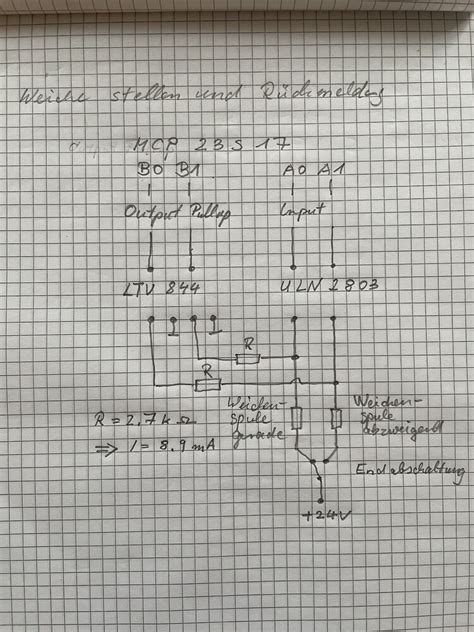 Weiche stellen und Rückmeldung
MCP 23S17
B0 B1 A0 A1
Output Pullup Input
LTV 844 ULN 2803
R
R
Weichen-
spule
gerade
Weichen-
spule
abzweigend
R = 2,7 k Ω
⇒ I = 8,9 mA
Endabschaltung
+24V